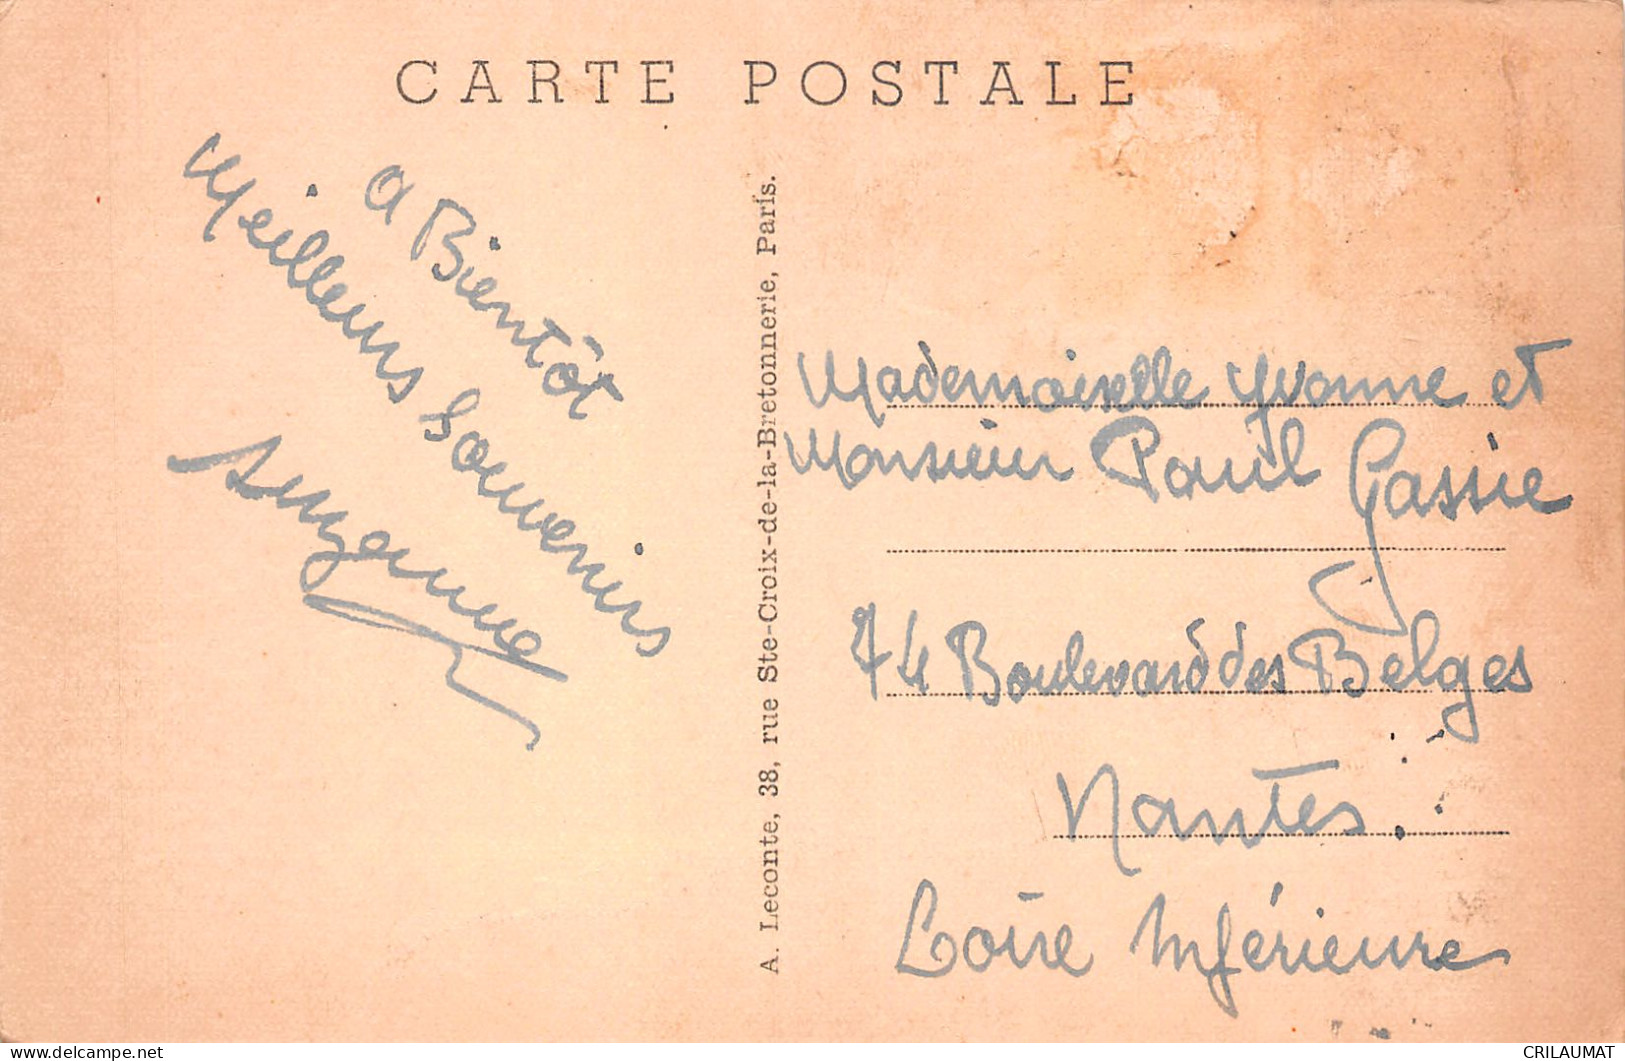 CARTE POSTALE
A Bientôt
Meilleurs Souvenirs
Suzanne
A. Leconte, 38, rue Ste-Croix-de-la-Bretonnerie, Paris.
Mademoiselle Yvonne et
Monsieur Paul Gassie
74 Boulevard des Belges
Nantes.
Loire Inférieure
CRILAUMAT